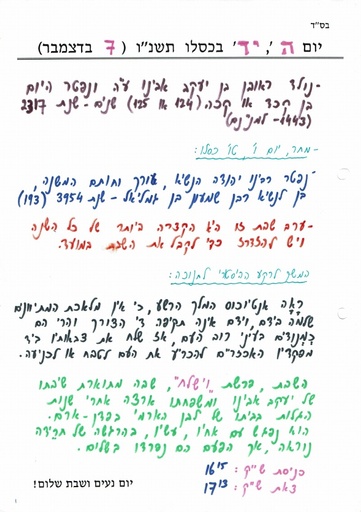 בס"ד
יום ה', י"ד' בכסלו תשנ"ו (7 בדצמבר)
-נולד ראובן בן יעקב אבינו ע"ה ונפטר היום
בן קכד או קכה (124 או 125) שנים - שנת 2317
-מחר, יום ו', ט"ו כסלו:
-נפטר רבינו יהודה הנשיא, עורך וחותם המשנה,
בן לנשיא רבן שמעון בן גמליאל - שנת 3954 (193)
-ערב שבת זו היא הקצרה ביותר של כל השנה
ויש להזדרז כדי לקבל את השבת במועד.
המשך לרקע ההיסטורי לחנוכה:
ראה אנטיוכוס המלך הרשע, כי אין מלאכת המתיוונים
שלמה בידם, וידם אינה תקיפה די הצורך והרי הם
כמנודים בעיני רוב העם, אז שלח את צבאותיו ביד
מפקדיו האכזריים להכריע את העם לטבח או לכניעה.
השבת, פרשת "וישלח", שבה מתוארת שיבתו
של יעקב אבינו ומשפחתו ארצה אחרי שנות
הגלות בביתו של לבן הארמי בפדן-ארם.
הוא נפגש עם אחיו, עשיו, בהרגשה של חרדה
נוראה, אך הפעם הם נפרדו בשלום.
כניסת ש"ק: 16:15
צאת ש"ק: 17:13
יום נעים ושבת שלום!